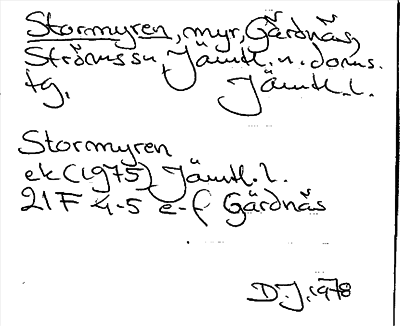 Stormyren, myr, Gärdnäs,
Ströms sn, Jämtl. n. doms.
tg, Jämtl. l.
Stormyren
ek (1975) Jämtl. l.
21F 4-5 e-f Gärdnäs
D.J. 1978